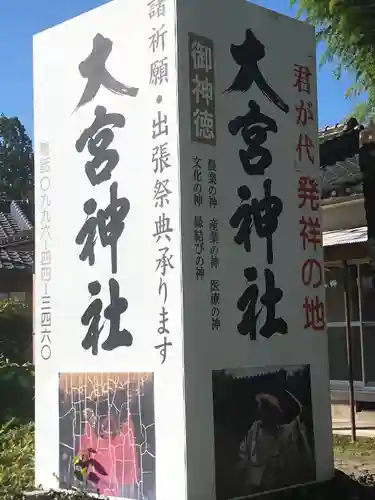 諸祈願・出張祭典承ります
大宮神社
電話〇九九六-四四-三四六〇
「君が代」発祥の地
大宮神社
御神徳
農業の神 産業の神 医療の神
文化の神 縁結の神